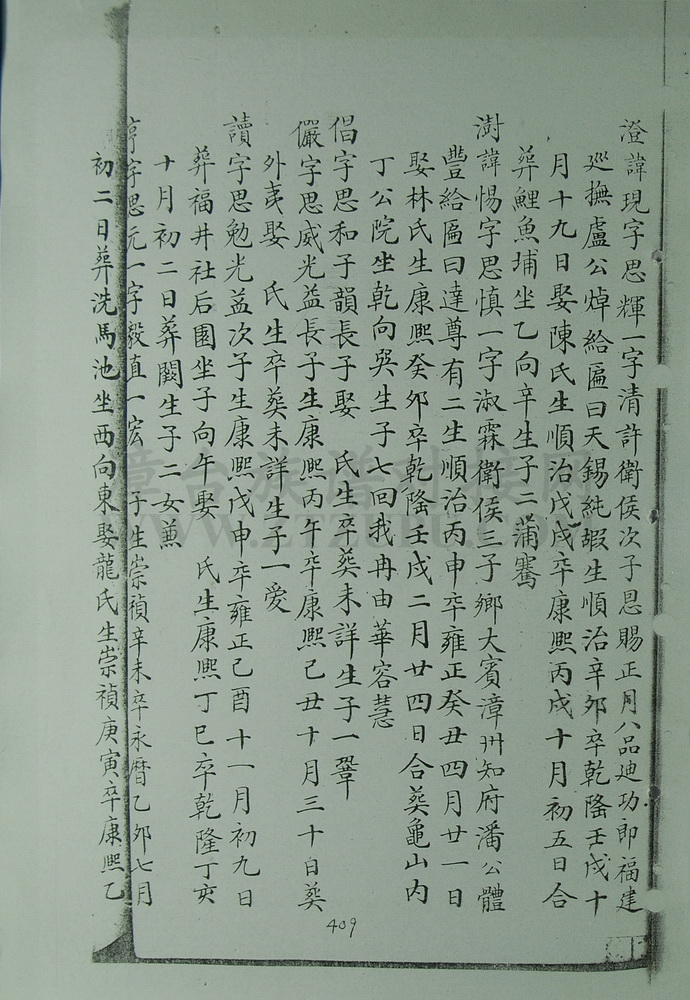 澄諱現字思輝一字清許衛侯次子恩賜正月八品廸功郎福建
廵撫盧公焯給匾曰天錫純嘏生順治辛夘卒乾隆壬戌十
月十九日娶陳氏生順治戊戌卒康熙丙戌十月初五日合
葬鯉魚埔坐乙向辛生子二蒲騫
澍諱惕字思慎一字淑霖衛侯三子鄉大賓漳州知府潘公體
豐給匾曰達尊有二生順治丙申卒雍正癸丑四月廿一日
娶林氏生康熙癸夘卒乾隆壬戌二月廿四日合葬龜山內
丁公院坐乾向巽生子七回我冉由華容慧
倡字思和子韻長子娶 氏生卒葬未詳生子一鞏
儼字思威光益長子生康熙丙午卒康熙己丑十月三十日葬
外夷娶 氏生卒葬未詳生子一愛
讀字思勉光益次子生康熙戊申卒雍正己酉十一月初九日
葬福井社后園坐子向午娶 氏生康熙丁巳卒乾隆丁亥
十月初二日葬闕生子二女兼
亨字思元一字毅直一宏 子生崇禎辛未卒永曆乙夘七月
初二日葬洗馬池坐西向東娶龍氏生崇禎庚寅卒康熙乙
409